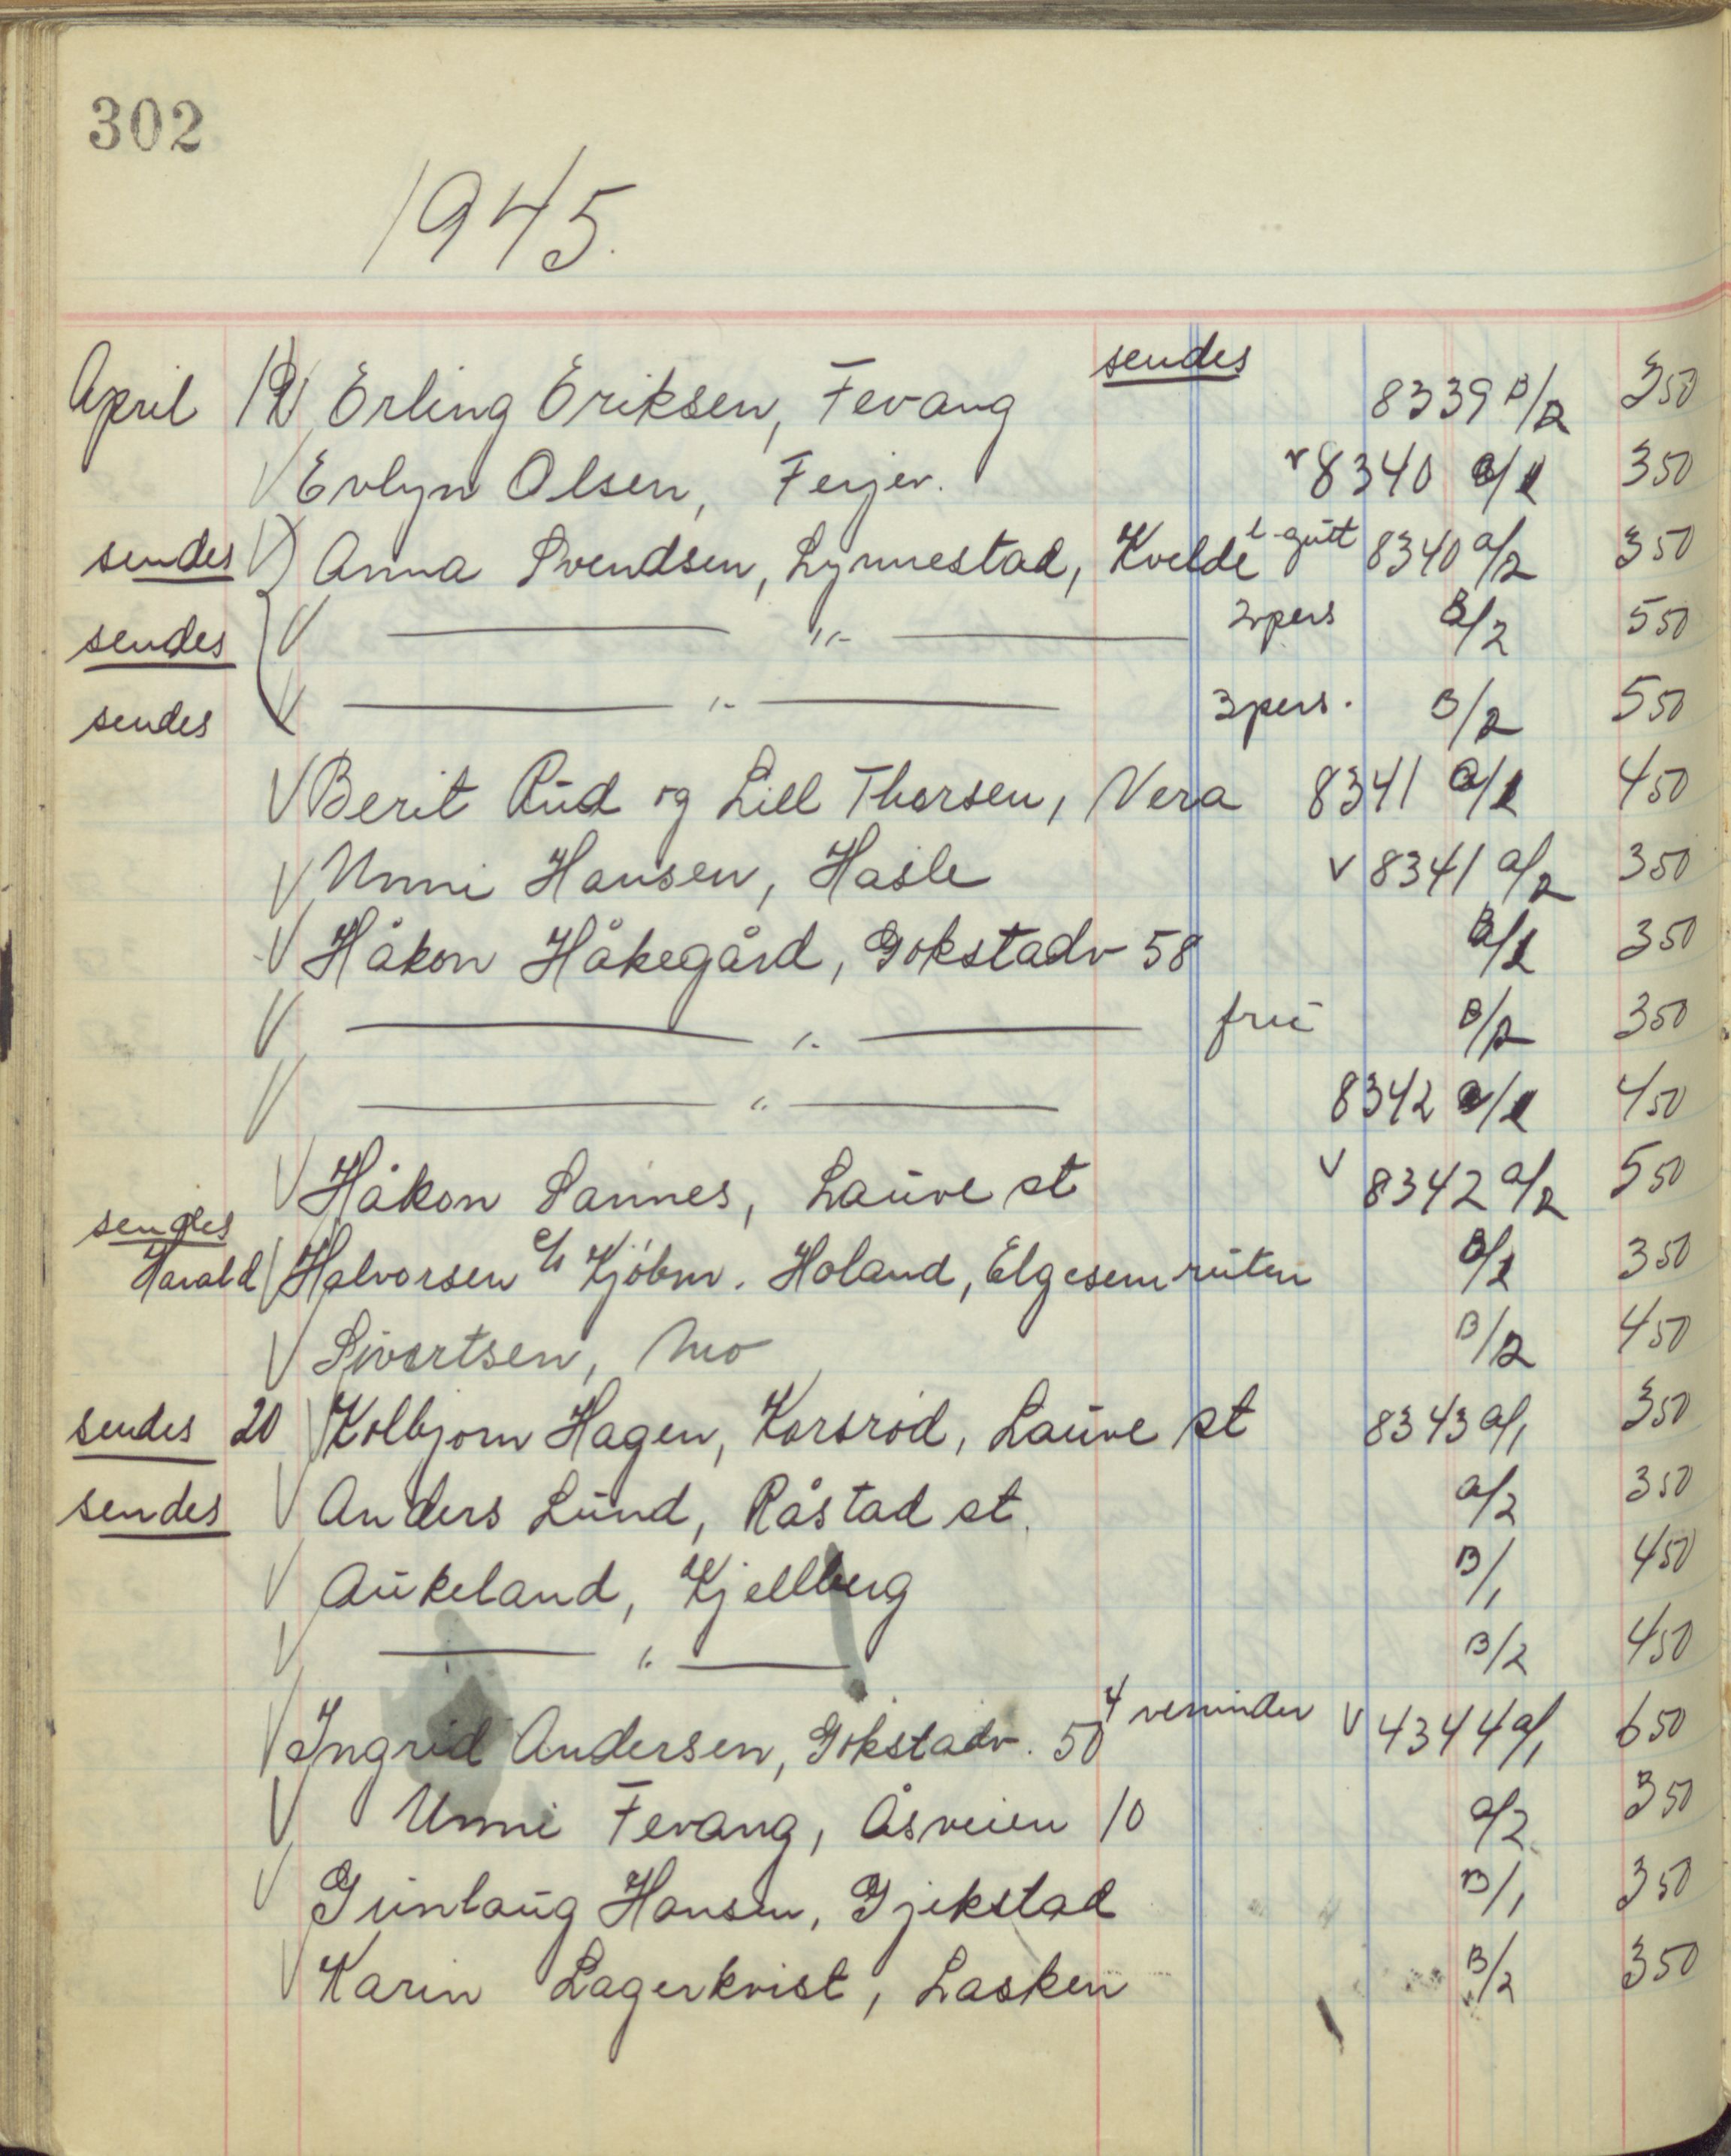 302
1945.
April 19 Erling Eriksen, Fevang sendes 8339 B/2 350
V Evlyn Olsen, Ferjev. v 8340 a/1 350
sendes V Anna Svendsen, Lynnestad, Kvelde l. gutt 8340 a/2 350
sendes V —— " —— 2 pers B/2 550
sendes V —— " —— 3 pers. B/2 550
V Berit Rud og Lill Thorsen, Vera 8341 a/1 450
V Unni Hansen, Hasle v 8341 a/2 350
V Håkon Håkegård, Gokstadv 58 B/1 350
V —— " —— frue B/2 350
V —— " —— 8342 a/1 450
V Håkon Sannes, Lauve st v 8342 a/2 550
sendes
Harald V Halvorsen c/o Kjøbm. Holand, Elgesemruten B/1 350
V Sivertsen, Mo B/2 450
sendes 20 V Kolbjørn Hagen, Korsrød, Lauve st 8343 a/1 350
sendes V Anders Lund, Råstad st. a/2 350
V Aukeland, Kjellberg B/1 450
V —— " —— B/2 450
V Ingrid Andersen, Gokstadv. 50 4 veninder v 4344 a/1 650
V Unni Fevang, Åsveien 10 a/2 350
V Gunlaug Hansen, Gjekstad B/1 350
V Karin Lagerkvist, Lasken B/2 350